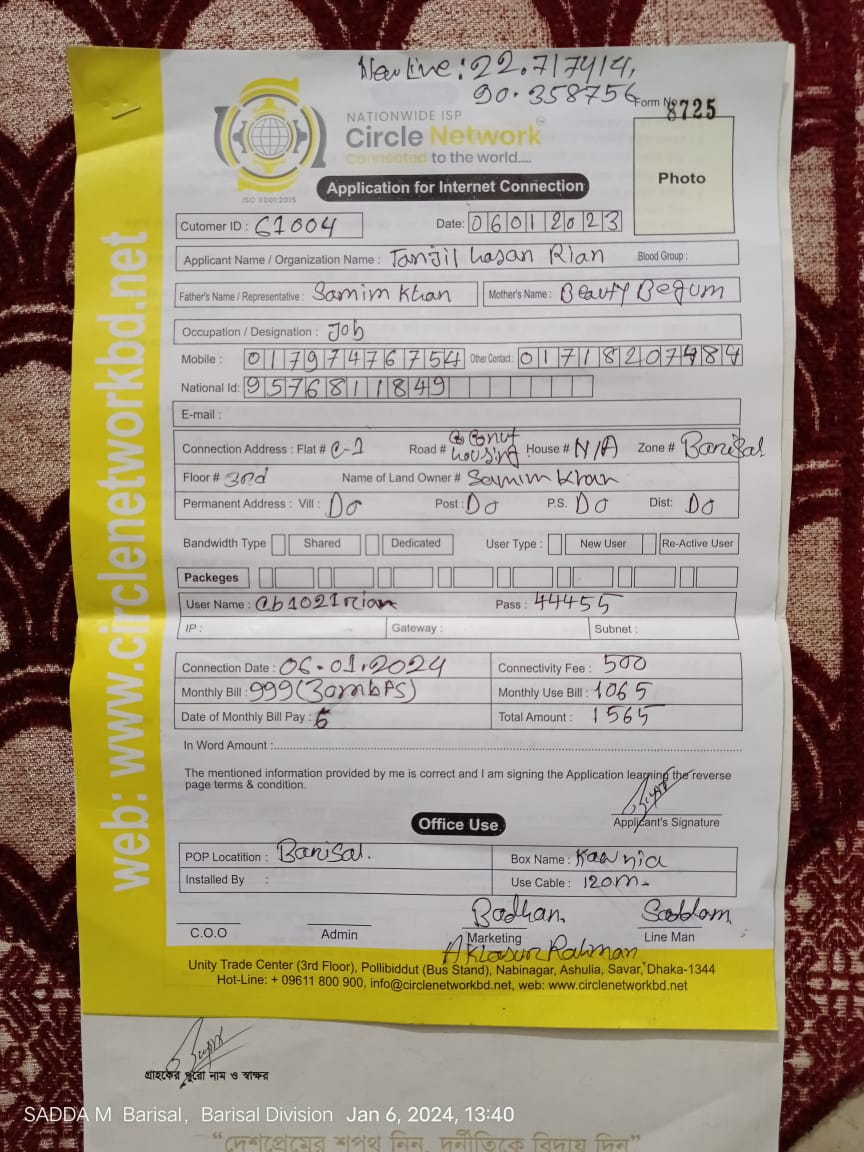 New Line : 22.717414,
90.358756
Form No 8725
NATIONWIDE ISP
Circle Network
Connected to the world.....
ISO 9001:2015
Photo
Application for Internet Connection
Cutomer ID : 61004 Date: 06012023
Applicant Name / Organization Name : Tanjil hasan Rian Blood Group :
Father's Name / Representative : Samim Khan Mother's Name : Beauty Begum
Occupation / Designation : Job
Mobile : 01797476754 Other Contact : 01718207484
National Id: 9576811849
E-mail :
Connection Address : Flat # C-1 Road # Coconut housing House # N/A Zone # Barisal
Floor # 3rd Name of Land Owner # Samim Khan
Permanent Address : Vill : Do Post : Do P.S. Do Dist: Do
Bandwidth Type Shared Dedicated User Type : New User Re-Active User
Packeges
User Name : cb1021rian Pass : 44455
IP : Gateway : Subnet :
Connection Date : 06.01.2024 Connectivity Fee : 500
Monthly Bill : 999(30mbPS) Monthly Use Bill : 1065
Date of Monthly Bill Pay : 5 Total Amount : 1565
In Word Amount :
The mentioned information provided by me is correct and I am signing the Application learning the reverse
page terms & condition.
Applicant's Signature
Office Use
POP Locatition : Barisal. Box Name : Kawnia
Installed By : Use Cable : 120m.
Badhan Saddam
C.O.O Admin Marketing Line Man
Aklasur Rahman
Unity Trade Center (3rd Floor), Pollibiddut (Bus Stand), Nabinagar, Ashulia, Savar, Dhaka-1344
Hot-Line: + 09611 800 900, info@circlenetworkbd.net, web: www.circlenetworkbd.net
web: www.circlenetworkbd.net
গ্রাহকের পুরো নাম ও স্বাক্ষর
SADDA M Barisal, Barisal Division Jan 6, 2024, 13:40
“দেশপ্রেমের শপথ নিন, দুর্নীতিকে বিদায় দিন”